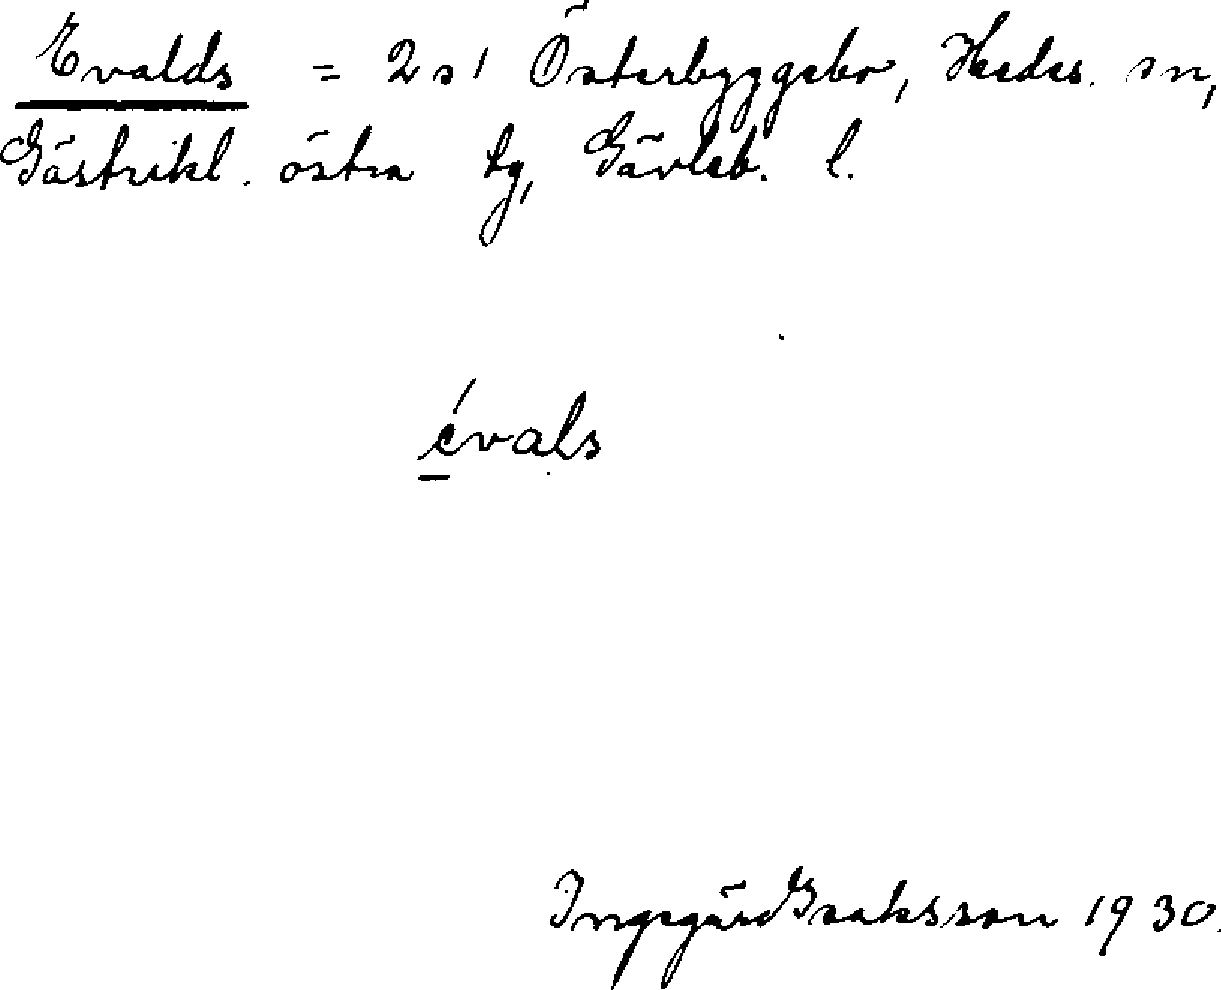 Evalds = 2s1 Österbyggebo, Hedes. sn,
Gästrikl. östra tg, Gävleb. l.
évals
Ingegärd Isaksson 1930.